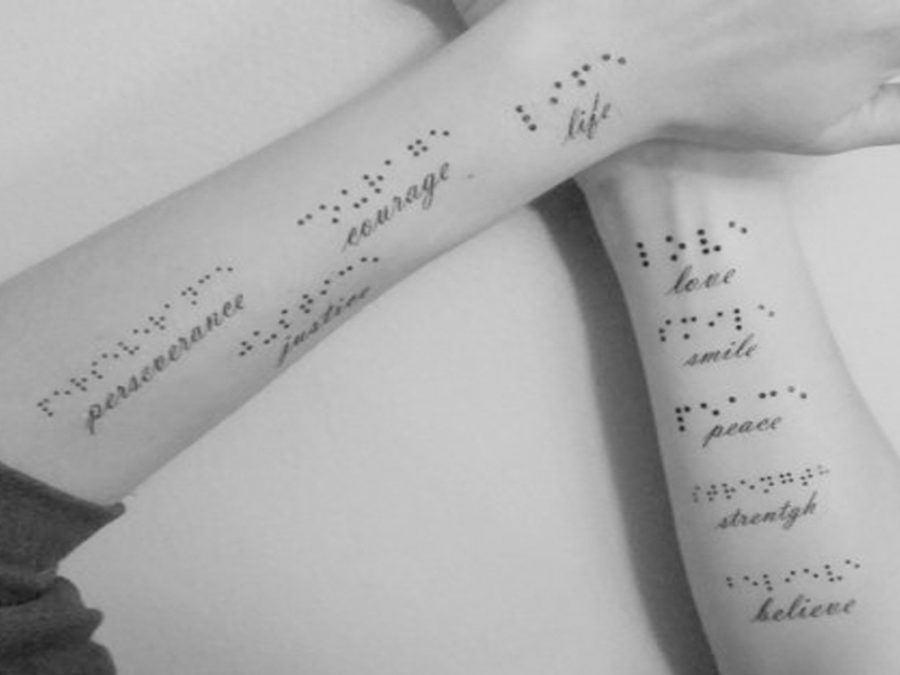 life
courage
justice
perseverance
love
smile
peace
strentgh
believe